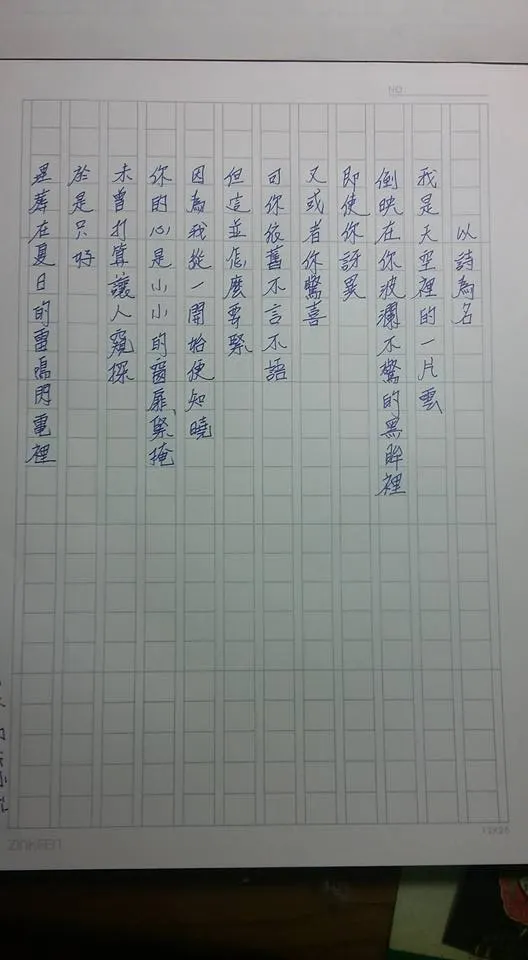 NO.
以詩為名
我是天空裡的一片雲
倒映在你波瀾不驚的黑眸裡
即使你訝異
又或者你驚喜
可你依舊不言不語
但這並怎麼要緊
因為我從一開始便知曉
你的心是小小的窗扉緊掩
未曾打算讓人窺探
於是只好
埋葬在夏日的雷鳴閃電裡